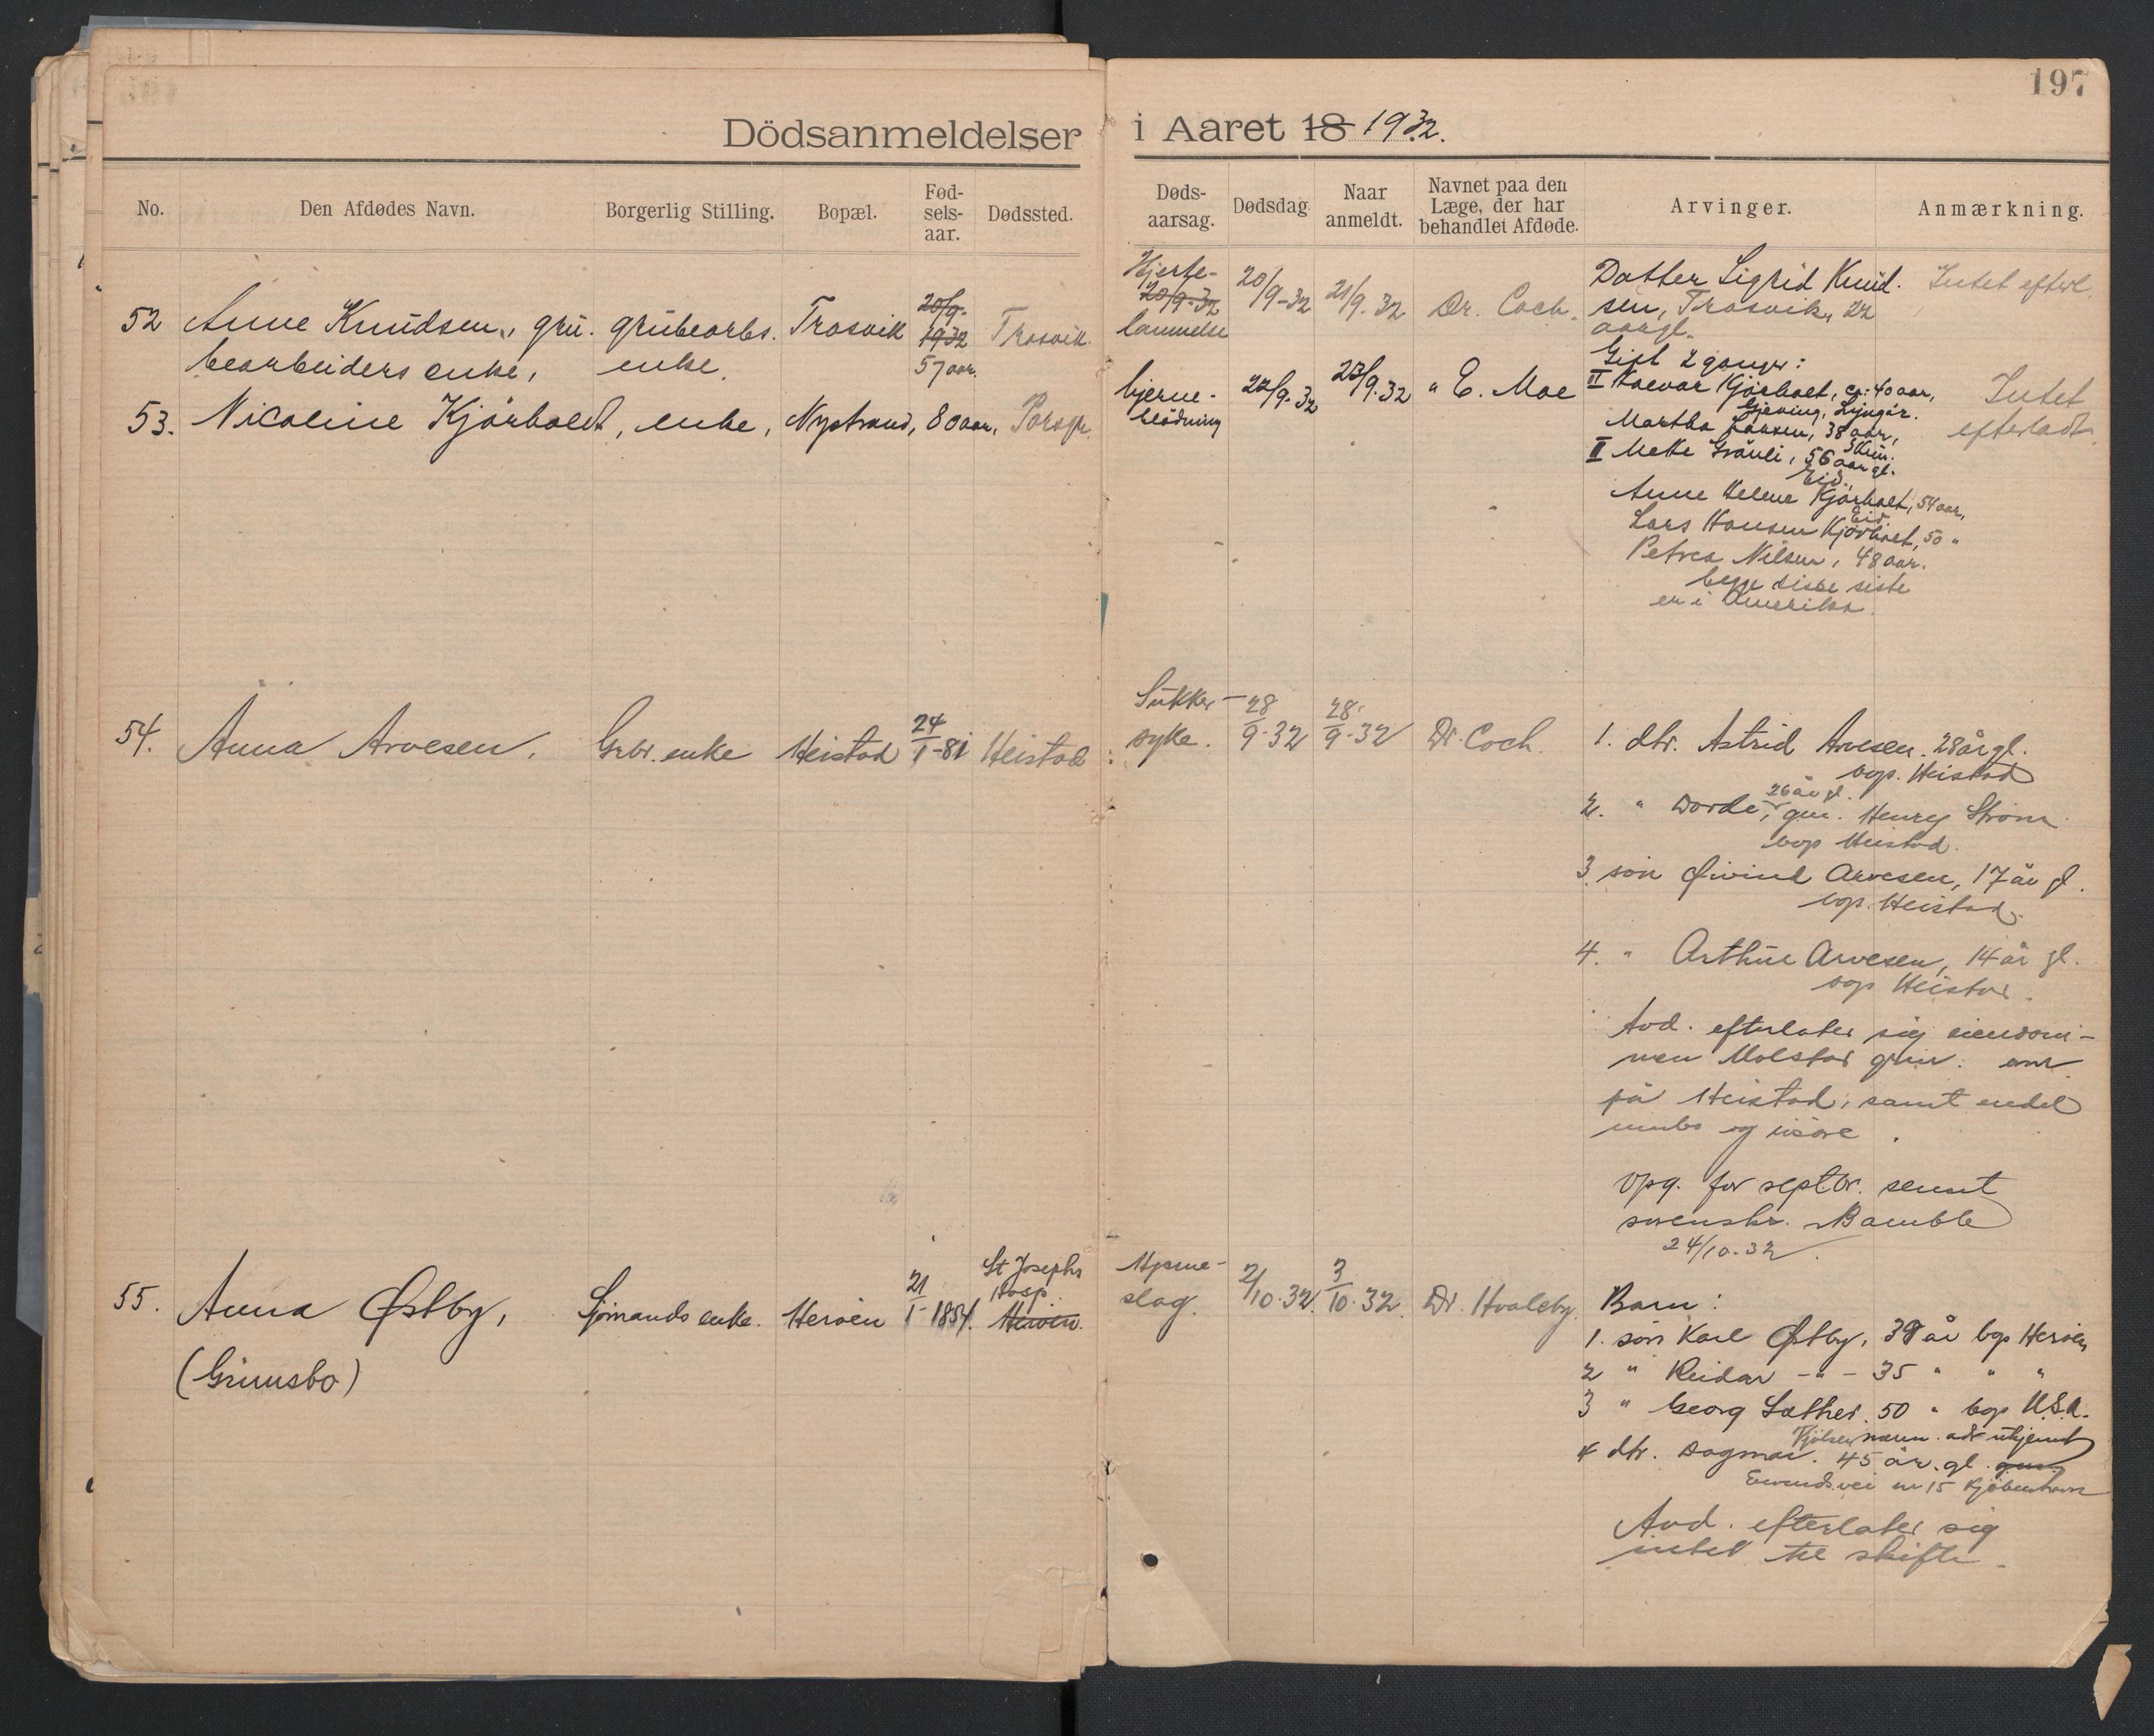 197
Dödsanmeldelser i Aaret 18 1932.
No. Den Afdødes Navn. Borgerlig Stilling. Bopæl. Fød-sels-aar. Dødssted. Døds-aarsag. Dødsdag. Naar anmeldt. Navnet paa den Læge, der har behandlet Afdøde. Arvinger. Anmærkning.
52 Anne Knudsen, gru-
bearbeiders enke,
grubearbs.
enke.
Trosvik
20/9-
1932
57 aar.
Trosvik
Hjerte-
20/9-32
lammelse
20/9-32
21/9.32
Dr. Coch.
Datter Sigrid Knud-
sen, Trosvik, 22
aargl.
Intet efterl.
53. Nicoline Kjörholt, enke, Nystrand, 80 aar, Porsgr.
hjerne-
blödning
22/9.32
23/9.32
" E. Moe
Gift 2 ganger:
II Kjörholt, ca. 40 aar,
Martha 38 aar,
II 56 aar gl.
Eid.
Anne Helene Kjörholt, 54 aar,
Eid.
Lars Hansen Kjörholt, 50 "
Petrea Nilsen, 48 aar.
begge disse siste
er i Amerika.
Intet
efterladt.
54. Anna Arvesen. Grbr. enke Heistad 24/1-81 Heistad
Sukker-
syke.
28/9-32
28/9-32
Dr. Coch.
1. dtr. Astrid Arvesen. 28 år gl.
bop. Heistad
26 år gl.
2. " Dorde, gm. Henry Strøm
bop Heistad.
3. sön Øivind Arvesen, 17 år gl.
bop. Heistad.
4. " Arthur Arvesen, 14 år gl.
bop Heistad.
Avd. efterlater sig eiendom-
men Molstad gnr. bnr.
på Heistad, samt endel
innbo og lösöre.
Opg. for septbr. sennt
sorenskr. Bamble
24/10.32.
55. Anna Østby,
(Grimsbo)
Sjømands enke. Heröen
21/1-1854.
St Josephs
Hosp.
Heröen.
Hjerne-
slag.
2/10.32.
3/10.32.
Dr. Hvaleby.
Barn:
1. sön Karl Østby, 38 år bop Heröen
2 " Reidar - " - 35 " " "
3 " Georg Sæther. 50 " bop U.S.A.
4 dtr. Dagmar. 45 år. gl.
nr 15 Kjöbenhavn
Avd. efterlater sig
intet til skifte.